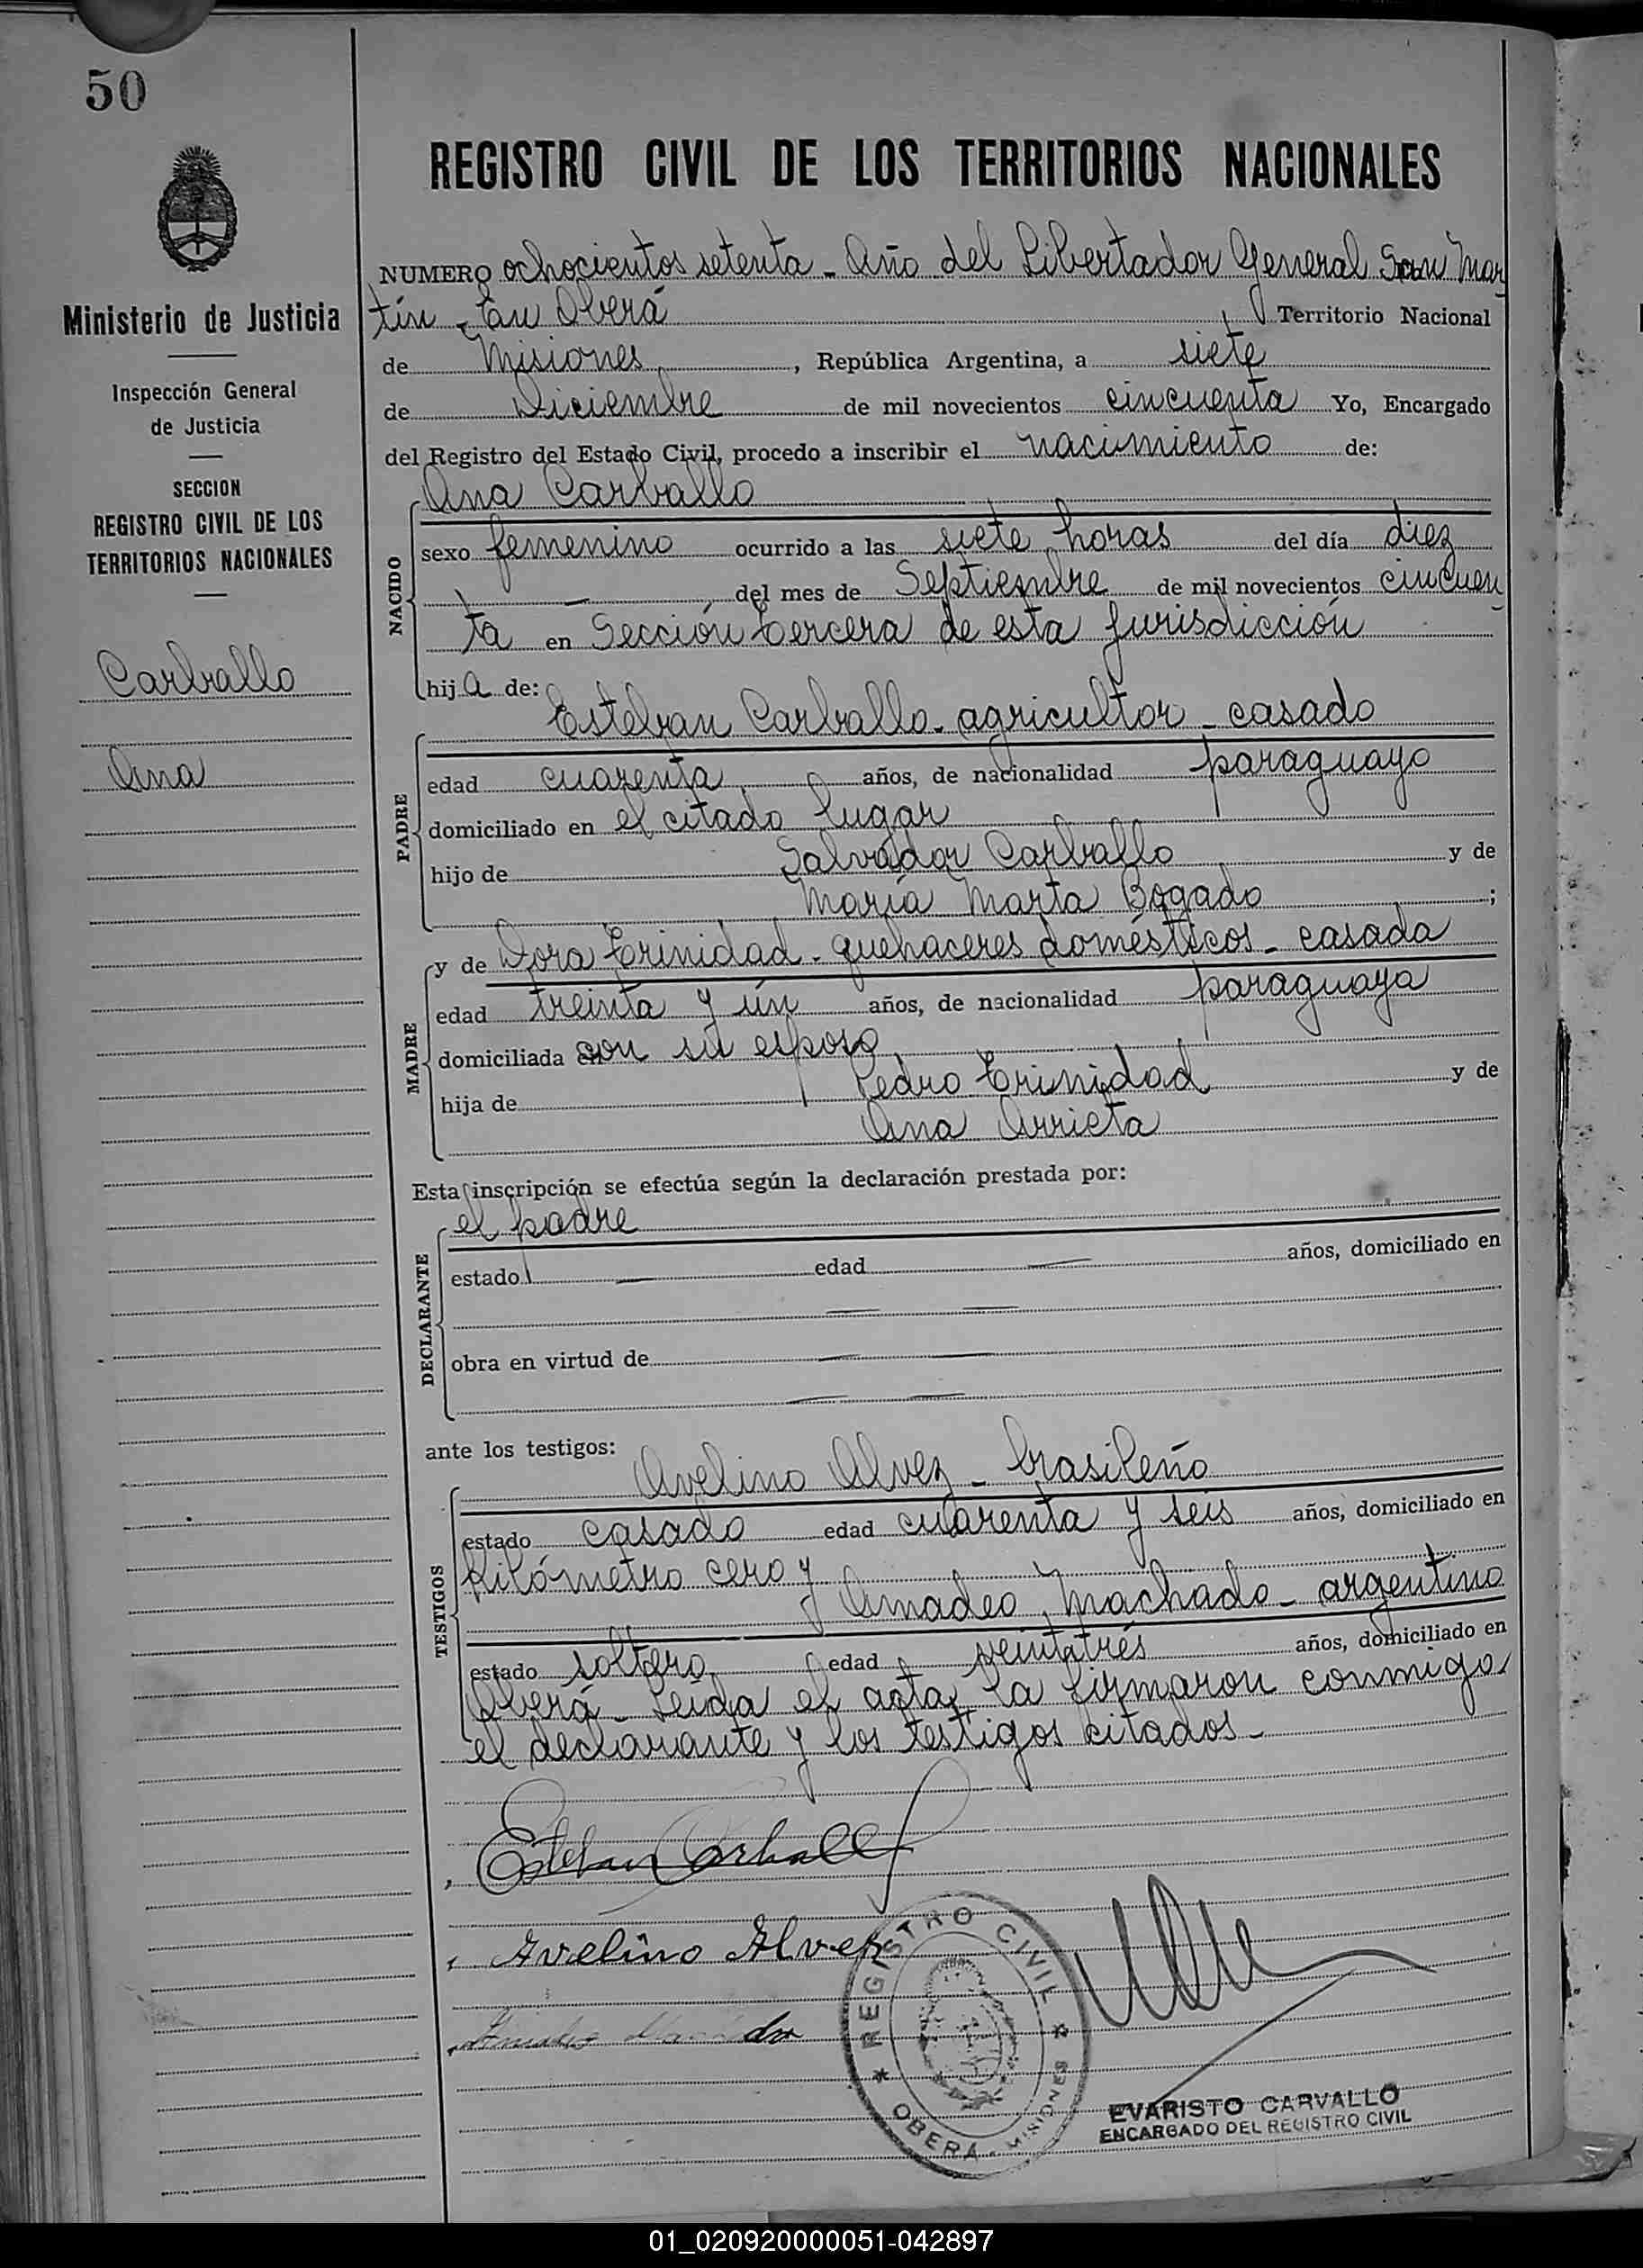 50
REGISTRO CIVIL DE LOS TERRITORIOS NACIONALES
Ministerio de Justicia
Inspección General
de Justicia
SECCION
REGISTRO CIVIL DE LOS
TERRITORIOS NACIONALES
Carballo
Ana
NUMERO ochocientos setenta - Año del Libertador General San Mar
tín - En Oberá Territorio Nacional
de Misiones, República Argentina, a siete
de Diciembre de mil novecientos cincuenta Yo, Encargado
del Registro del Estado Civil, procedo a inscribir el nacimiento de:
Ana Carballo
NACIDO
sexo femenino ocurrido a las siete horas del día diez
del mes de Septiembre de mil novecientos cincuen
ta en Sección tercera de esta jurisdicción
hija de:
Esteban Carballo - agricultor - casado
PADRE
edad cuarenta años, de nacionalidad paraguayo
domiciliado en el citado lugar
hijo de Salvador Carballo y de
María Marta Bogado;
MADRE
y de Dora Trinidad - quehaceres domésticos - casada
edad treinta y ún años, de nacionalidad paraguaya
domiciliada con su esposo
hija de Pedro Trinidad y de
Ana Arrieta
Esta inscripción se efectúa según la declaración prestada por:
el padre
DECLARANTE
estado — edad — años, domiciliado en
— —
obra en virtud de — —
— —
ante los testigos:
Avelino Alvez - brasileño
TESTIGOS
estado casado edad cuarenta y seis años, domiciliado en
Kilómetro cero y
Amadeo Machado - argentino
estado soltero edad veintitrés años, domiciliado en
Oberá - Leída el acta, la firmaron conmigo,
el declarante y los testigos citados -
Esteban Carballo
Avelino Alvez
REGISTRO CIVIL
OBERA - MISIONES
EVARISTO CARVALLO
ENCARGADO DEL REGISTRO CIVIL
01_020920000051-042897